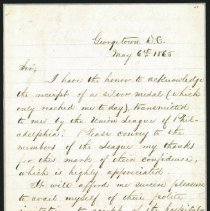 Georgetown, D.C.
May 6th 1865
Sir,
I have the honor to acknowledge
the receipt of a silver medal (which
only reached me to day), transmitted
to me by the Union League of Phil-
adelphia. Please convey to the
members of the League my thanks
for this mark of their confidence,
which is highly appreciated.
It will afford me sincere pleasure
to avail myself of their polite
to the hospitality